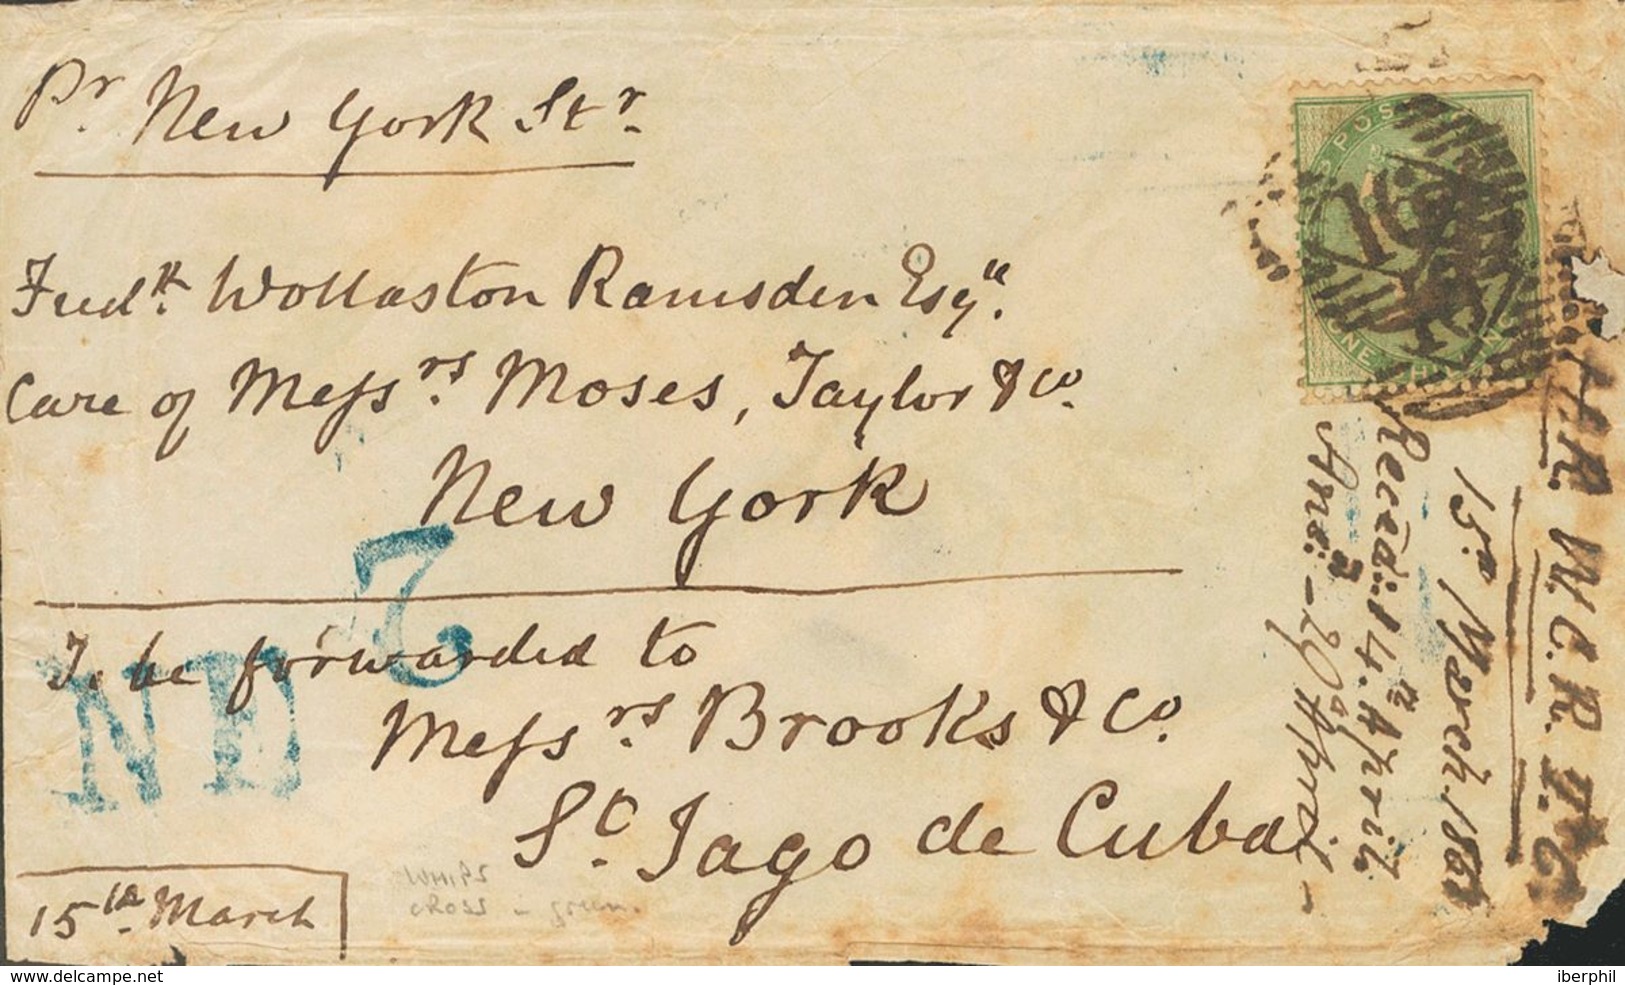 Pr. New York Str.
Fredk. Wollaston Ramsden Esqre.
Care of Messrs. Moses, Taylor & Co.
New York
To be forwarded to
Messrs. Brooks & Co.
St. Jago de Cuba
15th. March
NE 2
POS
ONE
16
CROSS in green.
15th March. 1861
Recēd: 14th April.
Ans:
April
www.delcampe.net
iberphil